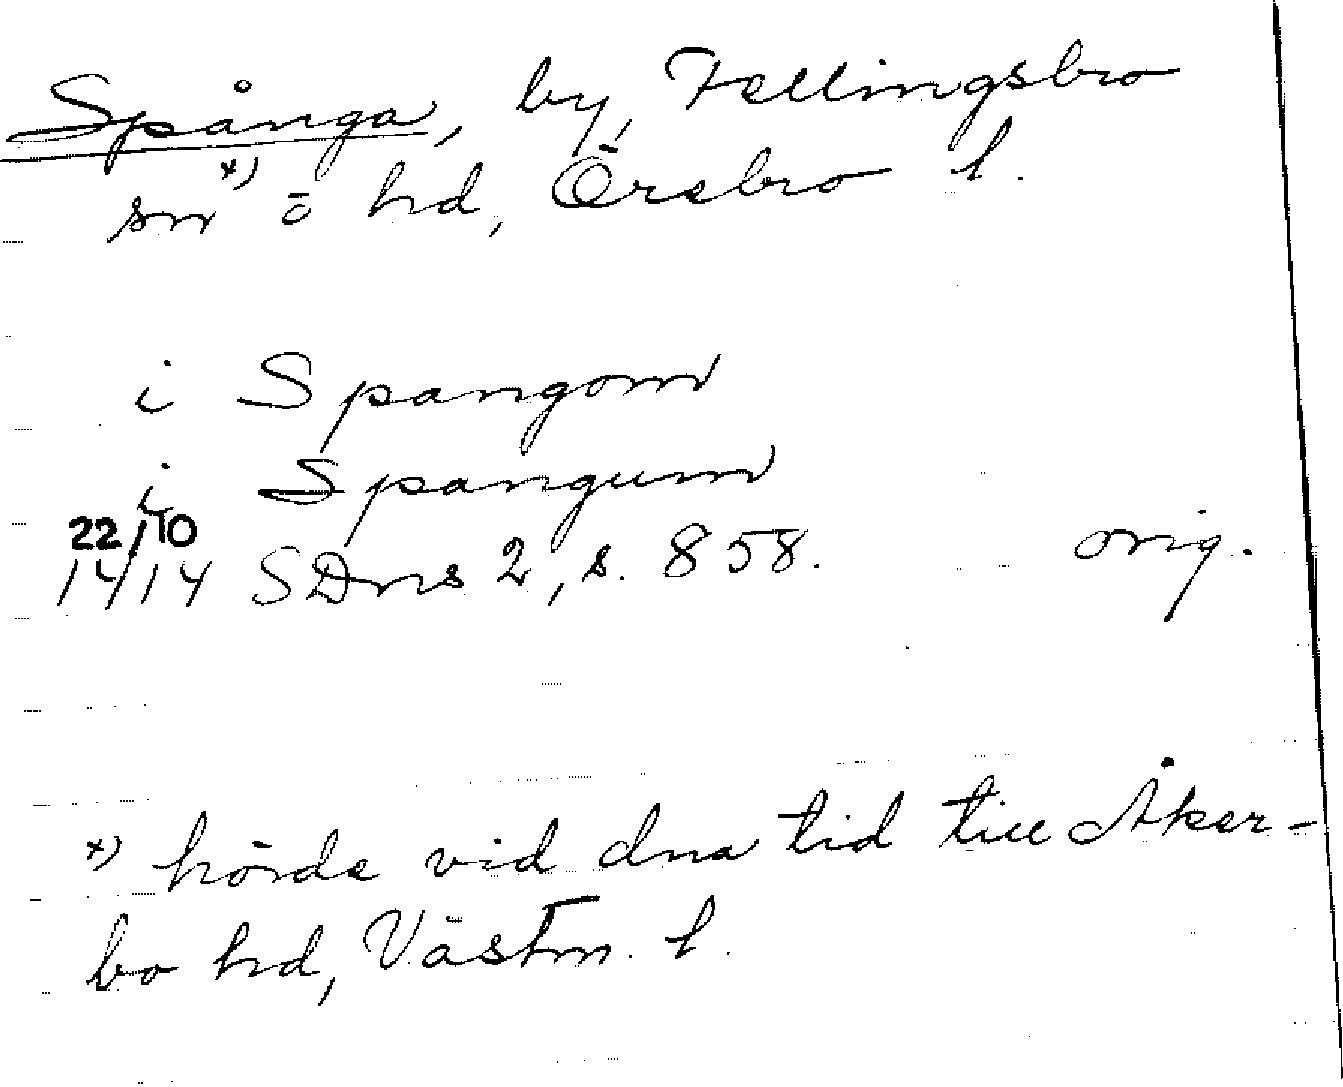 Spånga, by, Fellingsbro
sn *) o hd, Örebro l.
i Spangom
i Spangum
22/10
1414 SDns 2, s. 858. orig.
*) hörde vid dna tid till Åker-
bo hd, Västm. l.